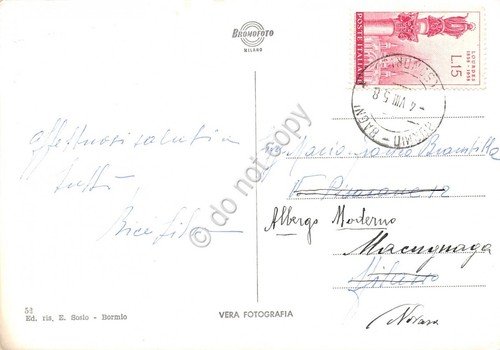 BROMOFOTO
MILANO
POSTE ITALIANE
L.15
LOURDES
1858-1958
BAGNI
-4 VIII 58
affettuosi saluti a
tutti
Bice
do not copy
Albergo Moderno
Macugnaga
Milano
Novara
52
Ed. ris. E. Sosio - Bormio
VERA FOTOGRAFIA